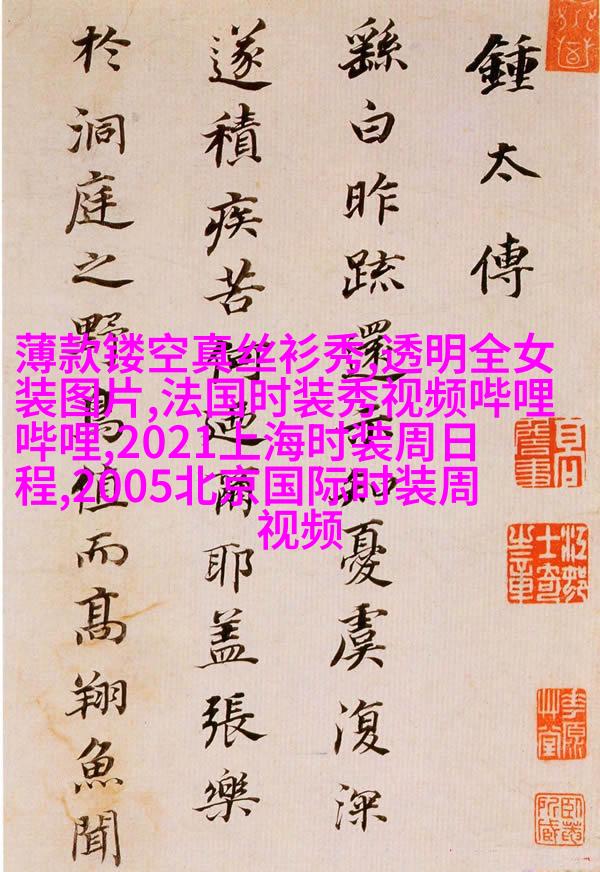 鍾太傅
繇白昨疏還示知憂虞復深
遂積疾苦何迺爾耶蓋張樂
於洞庭之野鳥值而高翔魚聞
薄款镂空真丝衫秀,透明全女
装图片,法国时装秀视频哔哩
哔哩,2021上海时装周日
程,2005北京国际时装周
视频
江邨
士奇
之章